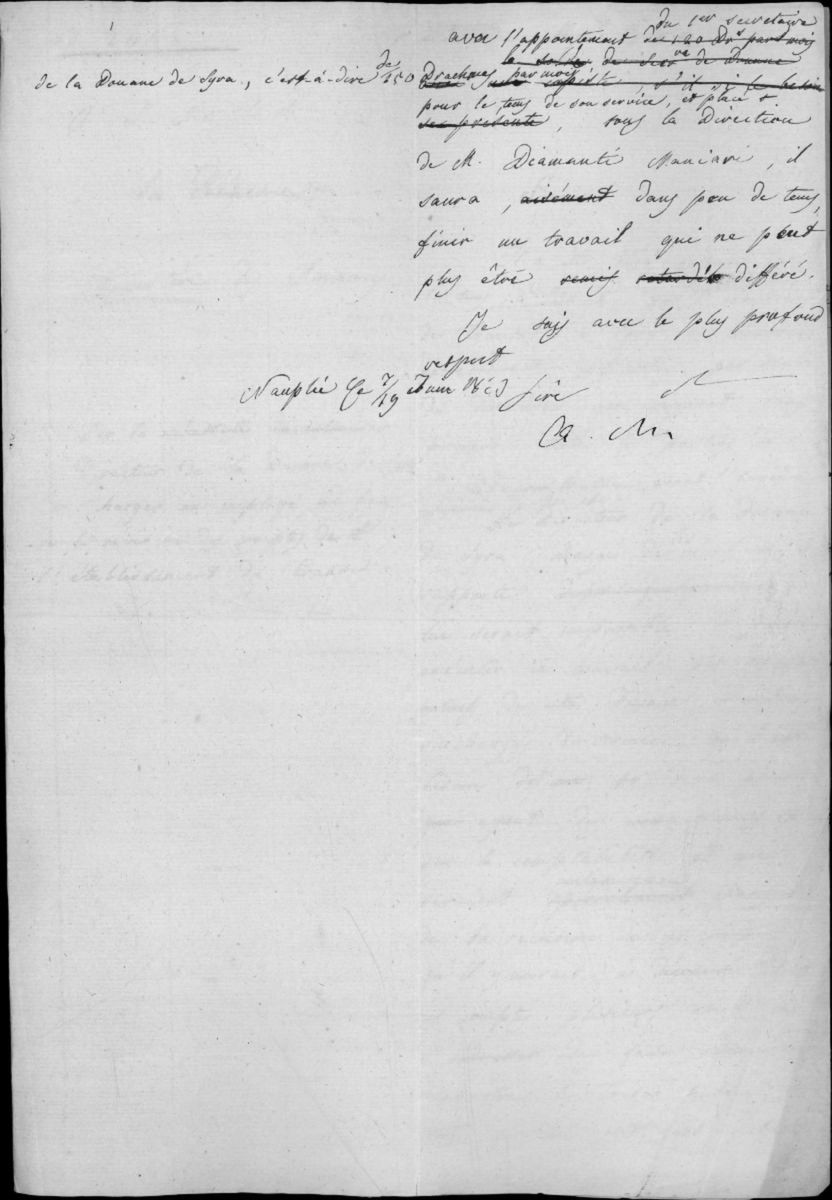 du 1er secretaire
avec l'appointement de 120 Drs par mois
le solde de de Douane
de la Douane de Syra, c'est-à-dire de 150 Drachmes par mois, s'il si le besoin
pour le tems de son service, et placé
se présente, sous la Direction
de M. Diamanti Maniari, il
saura, aisément dans peu de tems,
finir un travail qui ne peut
plus être remis retardé différé.
Je suis avec le plus profond
respect
Nauplie le 7/19 Sire